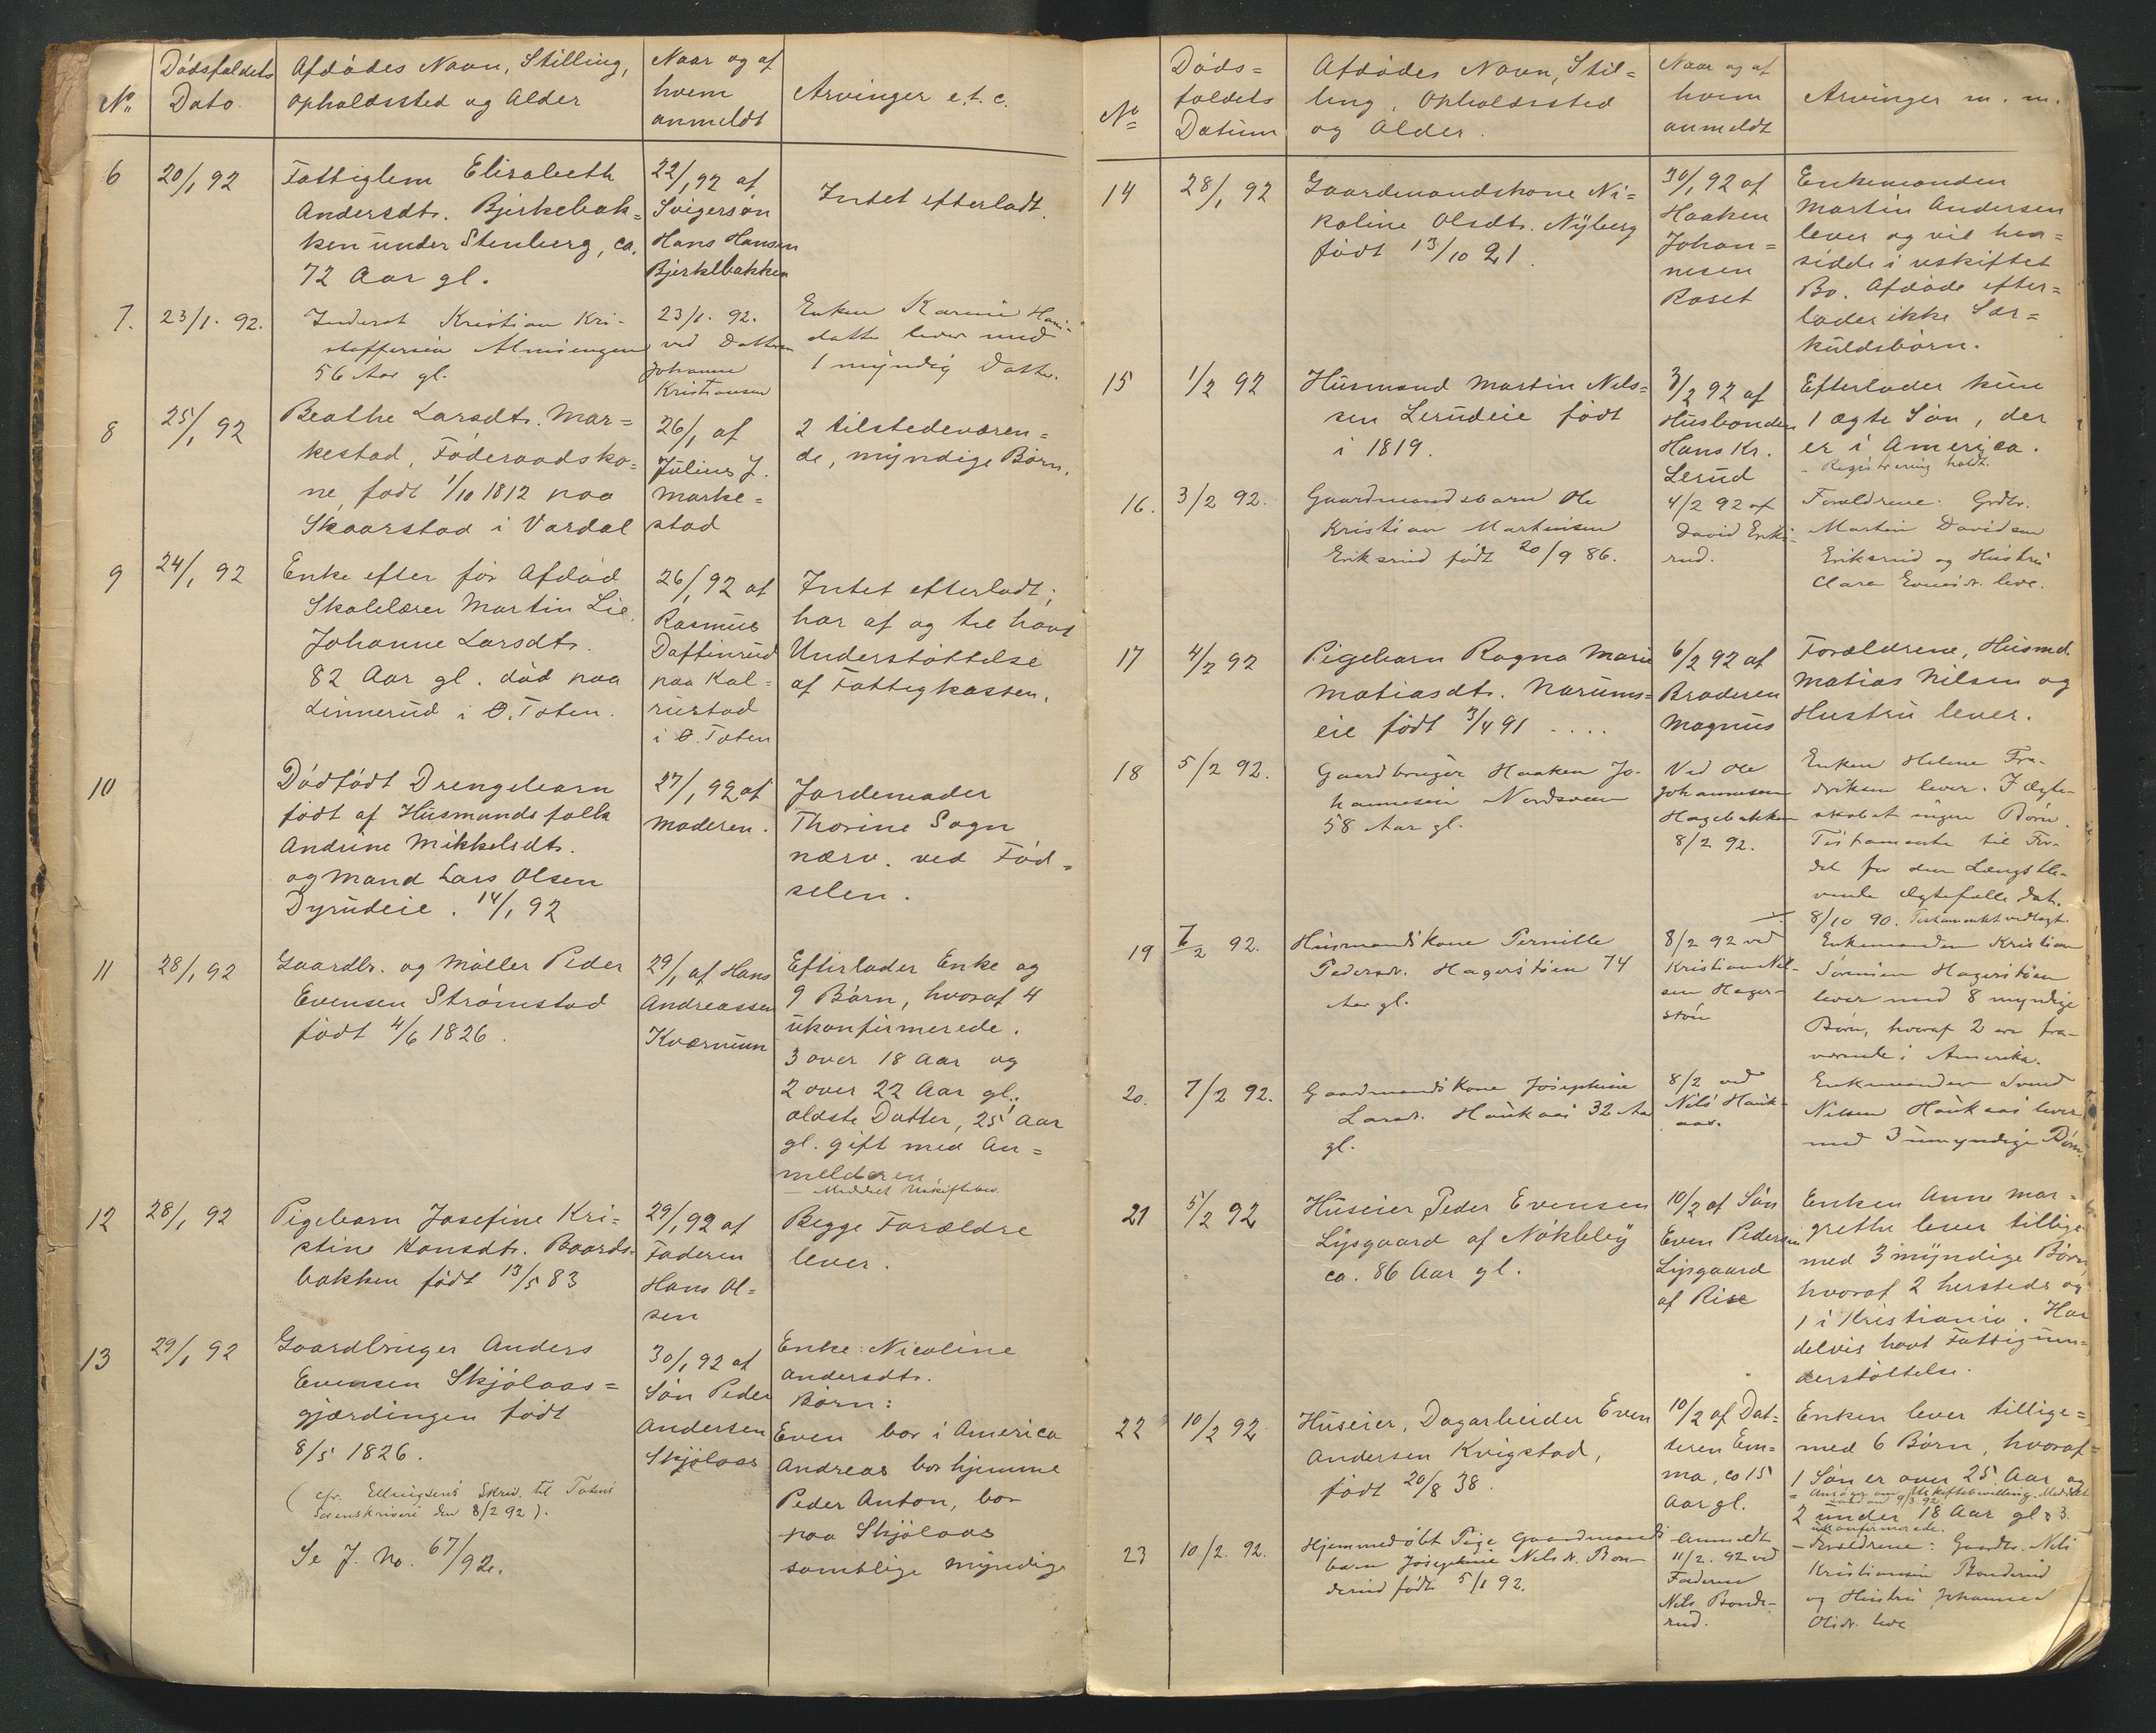 No.
Dödsfaldets
Dato.
Afdödes Navn, Stilling,
Opholdssted og Alder
Naar og af
hvem
anmeldt
Arvinger e.t.c.
6
20/1 92
Fattiglem Elisabeth
Andersdtr. Bjerkebak=
ken under Stenberg, ca.
72 Aar gl.
22/1 92 af
Svigersön
Hans Hansen
Bjerkebakken
Intet efterladt.
7.
23/1. 92.
Inderst Kristian Kri-
stoffersen Almsengen
56 Aar gl.
23/1. 92.
ved Datteren
Johanne
Kristiansen
Enken Karine Hans-
datter lever med
1 myndig Datter.
8
25/1 92
Beathe Larsdtr. Mar=
kestad, Föderaadsko=
ne, födt 1/10 1812 paa
Skaarstad i Vardal
26/1 af
Julius J.
Marke=
stad
2 tilstedeværen=
de, myndige Börn.
9
24/1 92
Enke efter för Afdöd
Skolelærer Martin Lie,
Johanne Larsdtr.
82 Aar gl. död paa
Linnerud i Ö. Toten.
26/1 92 af
Rasmus
Daffinrud
paa Kal=
rustad
i Ö. Toten
Intet efterladt;
har af og til havt
Understöttelse
af Fattigkassen.
10
Dödfödt Drengebarn
födt af Husmandsfolk
Andrine Mikkelsdtr.
og Mand Lars Olsen
Dyrudeie. 14/1 92
27/1 92 af
Moderen.
Jordemoder
Thorine Sogn
nærv. ved Föd=
selen.
11
28/1 92
Gaardbr. og Möller Peder
Evensen Strömstad
födt 4/6 1826.
29/1 af Hans
Andreassen
Kværnum
Efterlader Enke og
9 Börn, hvoraf 4
ukonfirmerede.
3 over 18 Aar og
2 over 22 Aar gl.,
ældste Datter, 25 Aar
gl. gift med An=
melderen
— Meddelt Uskiftebev.
12
28/1 92
Pigebarn Josefine Kri=
stine Hansdtr. Baards=
bakken födt 13/5 83
29/1 92 af
Faderen
Hans Ol=
sen
Begge Forældre
lever.
13
29/1 92
Gaardbruger Anders
Evensen Skjölaas=
gjærdingen födt
8/5 1826.
(cfr. Ellingsens Skriv. til Totens
Sorenskriveri den 8/2 92).
Se J. No. 67/92.
30/1 92 af
Sön Peder
Andersen
Skjölaas
Enke: Nicoline
Andersdtr.
Börn:
Even bor i America
Andreas bor hjemme
Peder Anton, bor
paa Skjölaas
samtlige myndige
No
Döds=
faldets
Datum
Afdödes Navn, Stil=
ling, Opholdssted
og Alder.
Naar og af
hvem
anmeldt
Arvinger m. m.
14
28/1 92
Gaardmandskone Ni=
koline Olsdtr. Nyberg
födt 13/10 21.
30/1 92 af
Haaken
Johan=
nesen
Roset
Enkemanden
Martin Andersen
lever og vil hen=
sidde i uskiftet
Bo. Afdöde efter=
lader ikke Sær=
kuldsbörn.
15
1/2 92
Husmand Martin Nils=
sen Lerudeie födt
i 1819.
3/2 92 af
Husbonden
Hans Kr.
Lerud
Efterlader kun
1 ægte Sön, der
er i America.
- Registrering holdt.
16.
3/2 92.
Gaardmandsbarn Ole
Kristian Martinsen
Eriksrud födt 20/9 86.
4/2 92 af
David Eriks-
rud.
Forældrene: Grdbr.
Martin Davidsen
Eriksrud og Hustru
Clara Evensdr. leve.
17
4/2 92
Pigebarn Ragna Marie
Matiasdtr. Narums=
eie födt 3/4 91 ....
6/2 92 af
Broderen
Magnus
Forældrene, Husmd.
Matias Nilsen og
Hustru lever.
18
5/2 92.
Gaardbruger Haaken Jo-
hannesen Nordsveen
58 Aar gl.
Ved Ole
Johannesen
Hagebakken
8/2 92.
Enken Helene Fre-
driksen lever. I Ægte-
skabet ingen Börn.
Testamente til For-
del for den Længstle-
vende Ægtefælle dat.
8/10 90. Testamentet vedlagt.
19
7/2 92.
Husmandskone Pernille
Pedersdr. Hagerstöen 74
Aar gl.
8/2 92 ved
Kristian Nil-
sen Hager-
stöen
Enkemanden Kristian
Sörensen Hagerstöen
lever med 8 myndige
Börn, hvoraf 2 ere fra-
værende i Amerika.
20.
7/2 92.
Gaardmandskone Josephine
Larsdr. Haukaas 32 Aar
gl.
8/2 ved
Nils Hauk-
aas.
Enkemanden Svend
Nilsen Haukaas lever
med 3 umyndige Börn.
21
5/2 92
Huseier Peder Evensen
Lysgaard af Nökleby
ca. 86 Aar gl.
10/2 af Sön
Even Pedersen
Lysgaard
af Rise
Enken Anne Mar-
grethe lever tillige
med 3 myndige Börn,
hvoraf 2 hersteds og
1 i Kristiania. Har
delvis havt Fattigun=
derstöttelse.
22
10/2 92
Huseier, Dagarbeider Even
Andersen Kvigstad,
födt 20/8 38.
10/2 af Dat=
teren Em=
ma, ca 15
Aar gl.
Enken lever tillige=
med 6 Börn, hvoraf
1 Sön er over 25 Aar og
= Ansöger om Uskiftebevilling. Meddelt
2 under 18 Aar gl & 3
ukonfirmerede.
23
10/2. 92.
Hjemmedöbt Pige Gaardmands
barn Josephine Nilsdr. Bon-
derud födt 5/1 92.
Anmeldt
11/2. 92 ved
Faderen
Nils Bonde-
rud.
— Forældrene: Gaardbr. Nils
Kristiansen Bonderud
og Hustru Johanne
Olsdr. leve